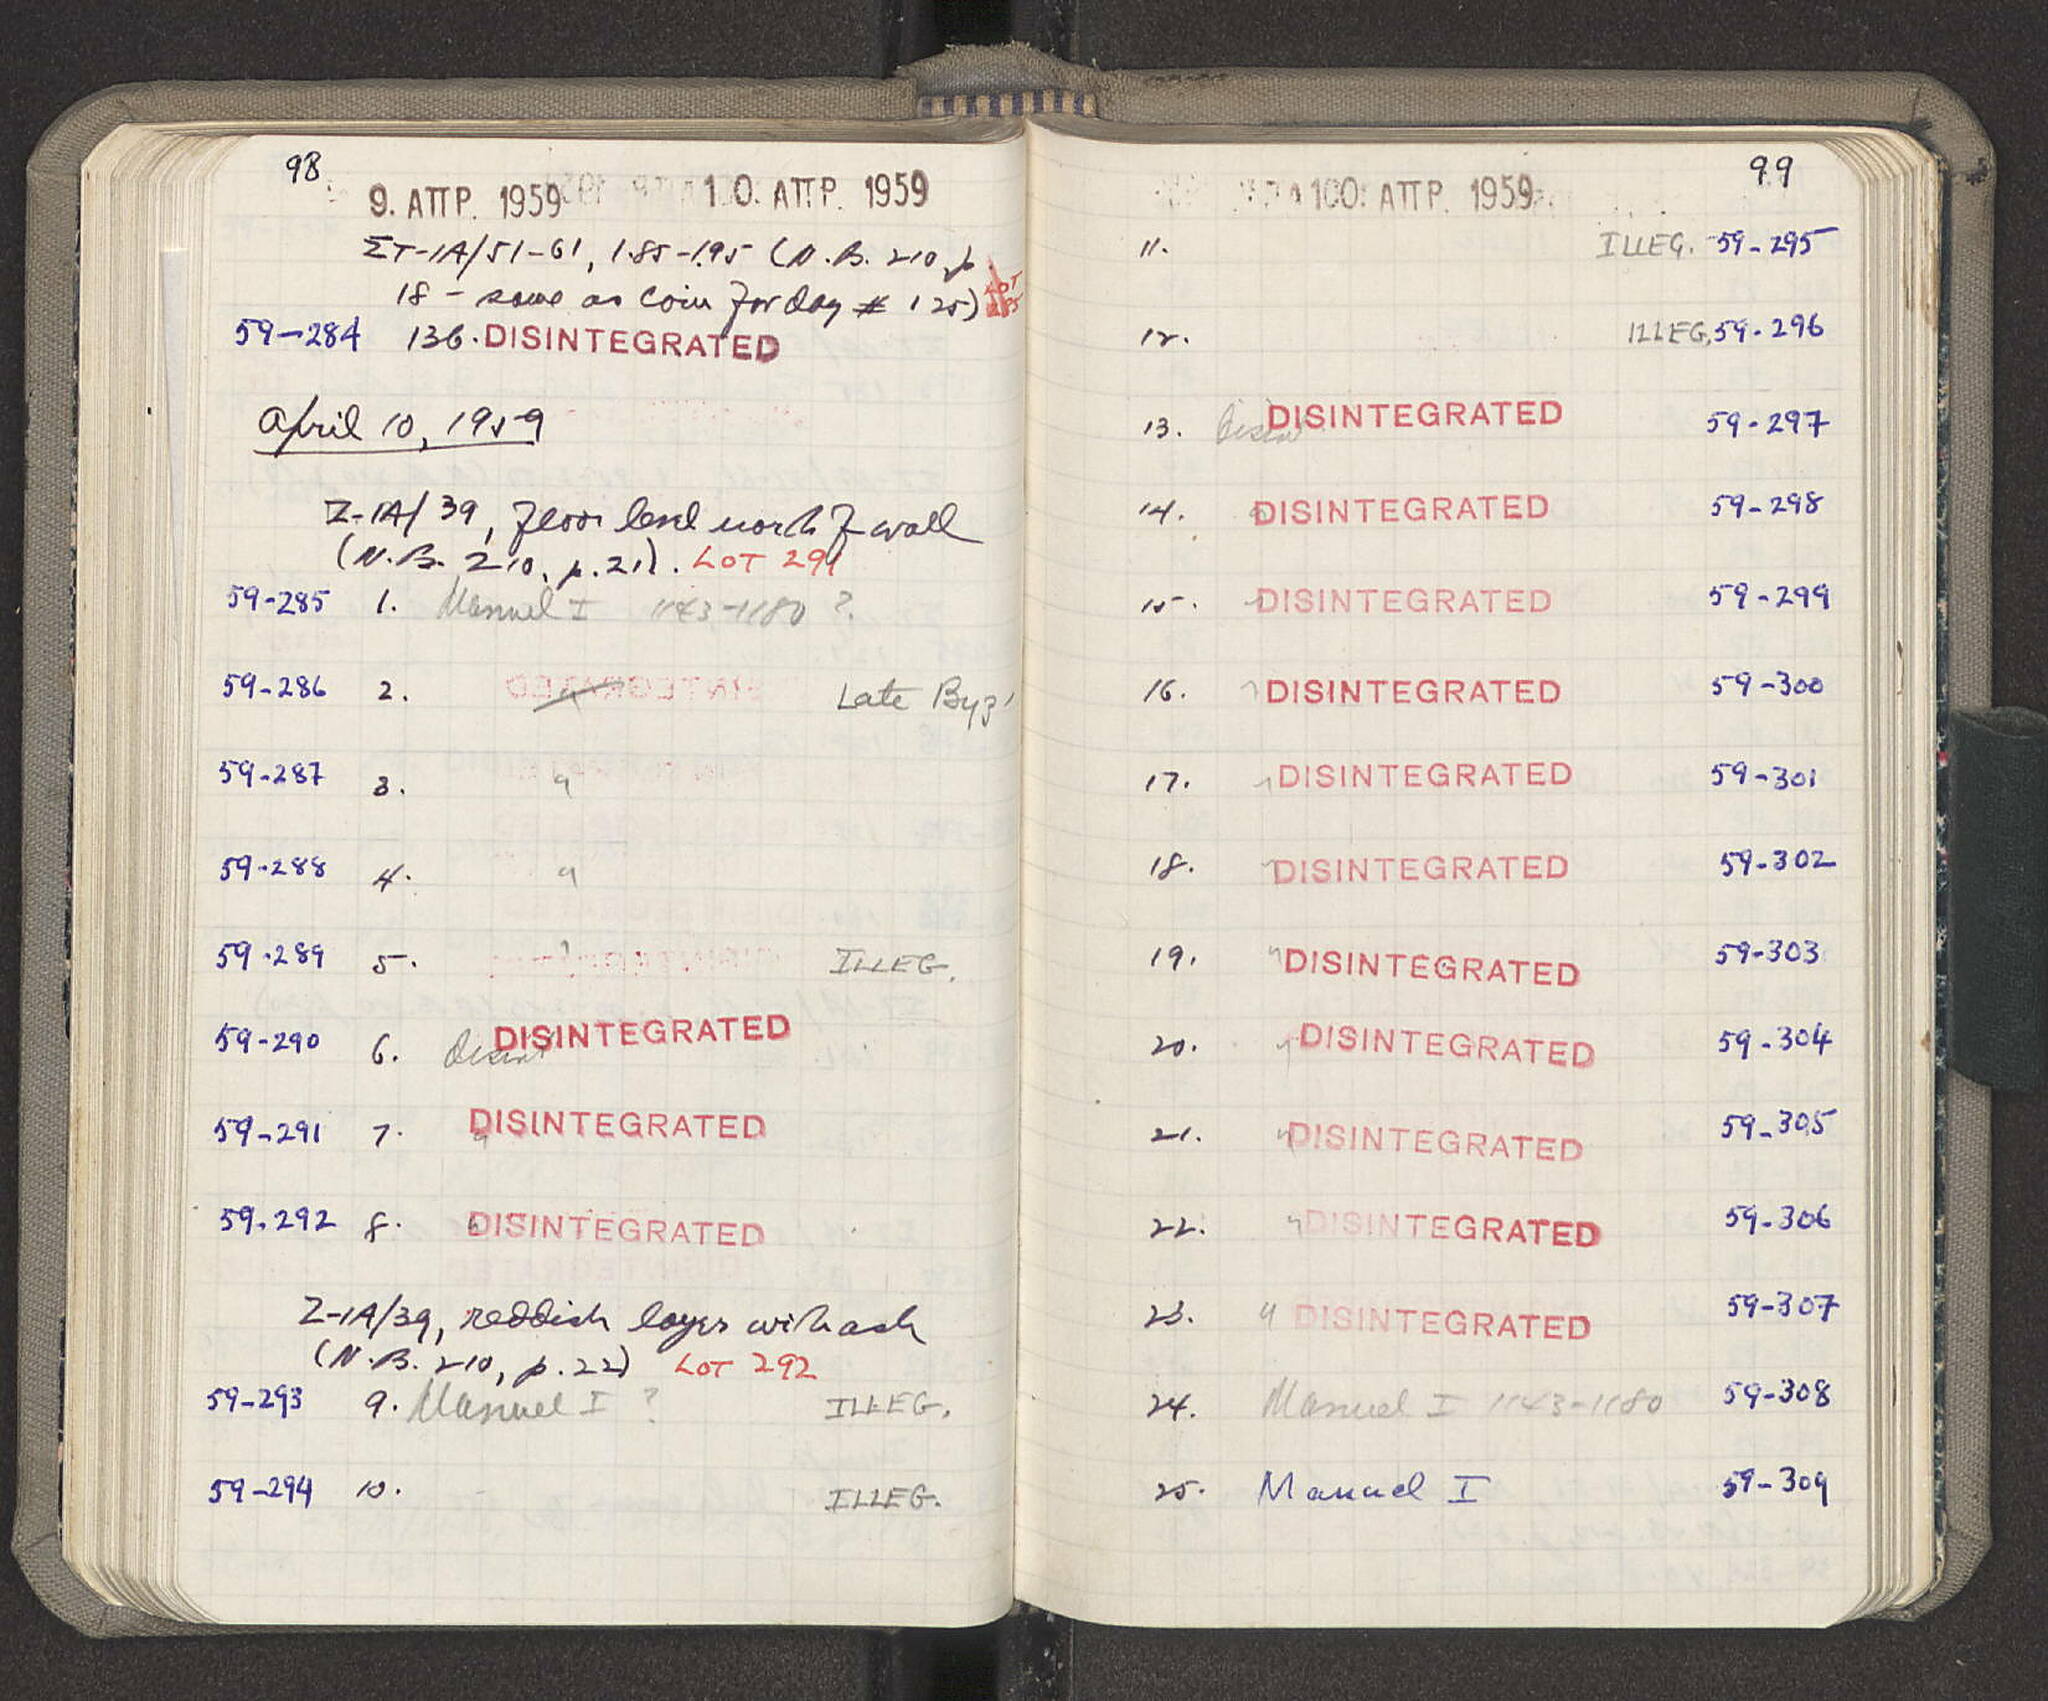 98
9. ΑΠΡ. 1959 10. ΑΠΡ. 1959
ΣΤ-1A/51-61, 1.85-1.95 (N.B. 210, p.
18 - same as coin for day # 125) LOT
59-284 136. DISINTEGRATED
April 10, 1959
Z-1A/39, floor level north of wall
(N.B. 210, p.21). LOT 291
59-285 1. Manuel I 1143-1180 ?
59-286 2. " Late Byz'
59-287 3. "
59-288 4. "
59-289 5. ILLEG.
59-290 6. Disint DISINTEGRATED
59-291 7. " DISINTEGRATED
59-292 8. " DISINTEGRATED
Z-1A/39, reddish layer with ash
(N.B. 210, p.22) LOT 292
59-293 9. Manuel I ? ILLEG.
59-294 10. ILLEG.
99
10. ΑΠΡ. 1959
11. ILLEG. 59-295
12. ILLEG. 59-296
13. Disint DISINTEGRATED 59-297
14. " DISINTEGRATED 59-298
15. " DISINTEGRATED 59-299
16. " DISINTEGRATED 59-300
17. " DISINTEGRATED 59-301
18. " DISINTEGRATED 59-302
19. " DISINTEGRATED 59-303
20. " DISINTEGRATED 59-304
21. " DISINTEGRATED 59-305
22. " DISINTEGRATED 59-306
23. " DISINTEGRATED 59-307
24. Manuel I 1143-1180 59-308
25. Manuel I 59-309